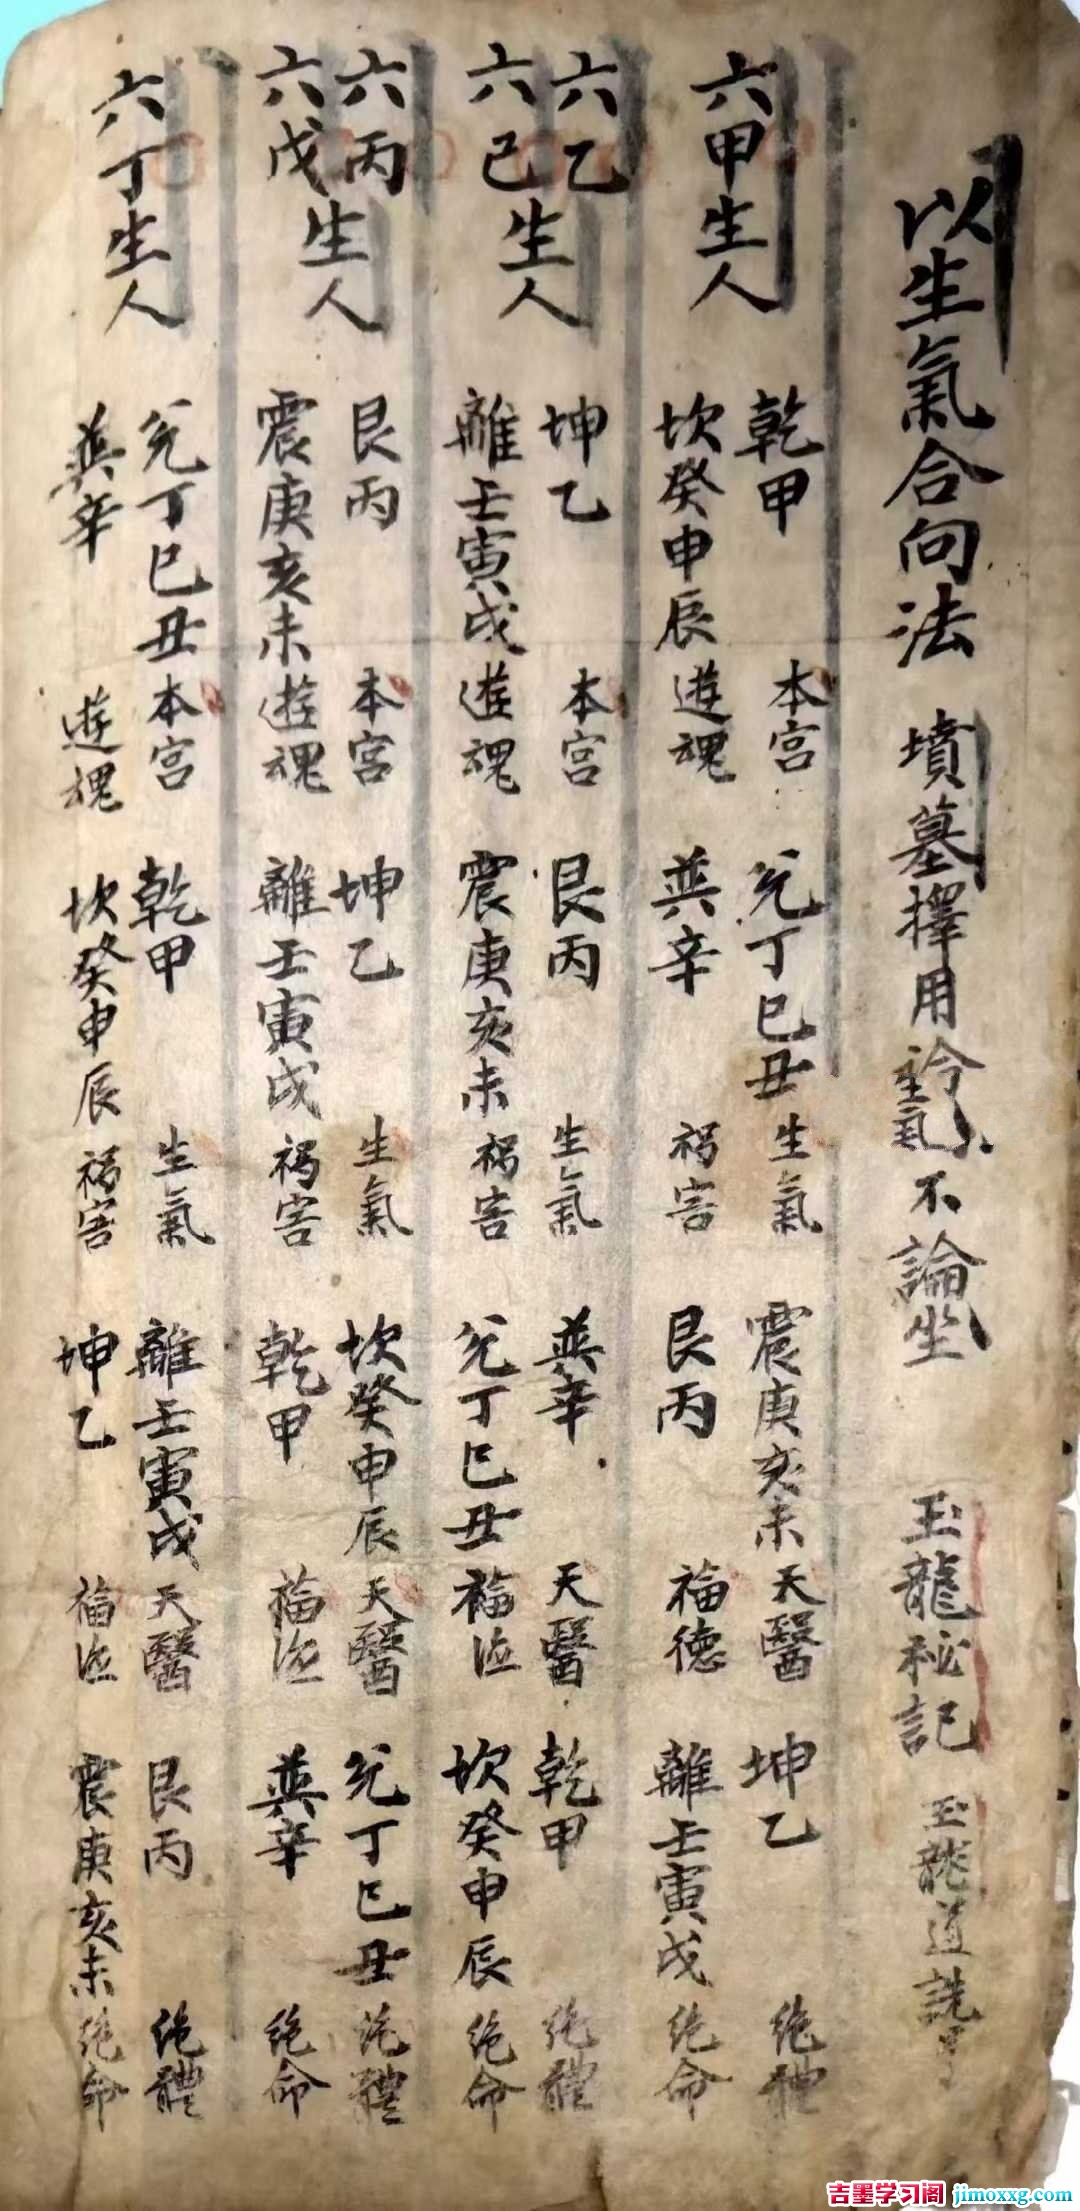 以生氣合向法 墳墓擇用 生氣 不論坐 玉龍秘記 玉龍道
六甲生人 乾甲 本宮 兌丁巳丑 生氣 震庚亥未 天醫 坤乙 絶體
坎癸申辰 遊魂 巽辛 禍害 艮丙 福德 離壬寅戌 絶命
六乙 六己 生人 坤乙 本宮 艮丙 生氣 巽辛 天醫 乾甲 絶體
離壬寅戌 遊魂 震庚亥未 禍害 兌丁巳丑 福德 坎癸申辰 絶命
六丙 六戊 生人 艮丙 本宮 坤乙 生氣 坎癸申辰 天醫 兌丁巳丑 絶體
震庚亥未 遊魂 離壬寅戌 禍害 乾甲 福德 巽辛 絶命
六丁生人 兌丁巳丑 本宮 乾甲 生氣 離壬寅戌 天醫 艮丙 絶體
巽辛 遊魂 坎癸申辰 禍害 坤乙 福德 震庚亥未 絶命
吉墨学习阁 jimoxxg.com